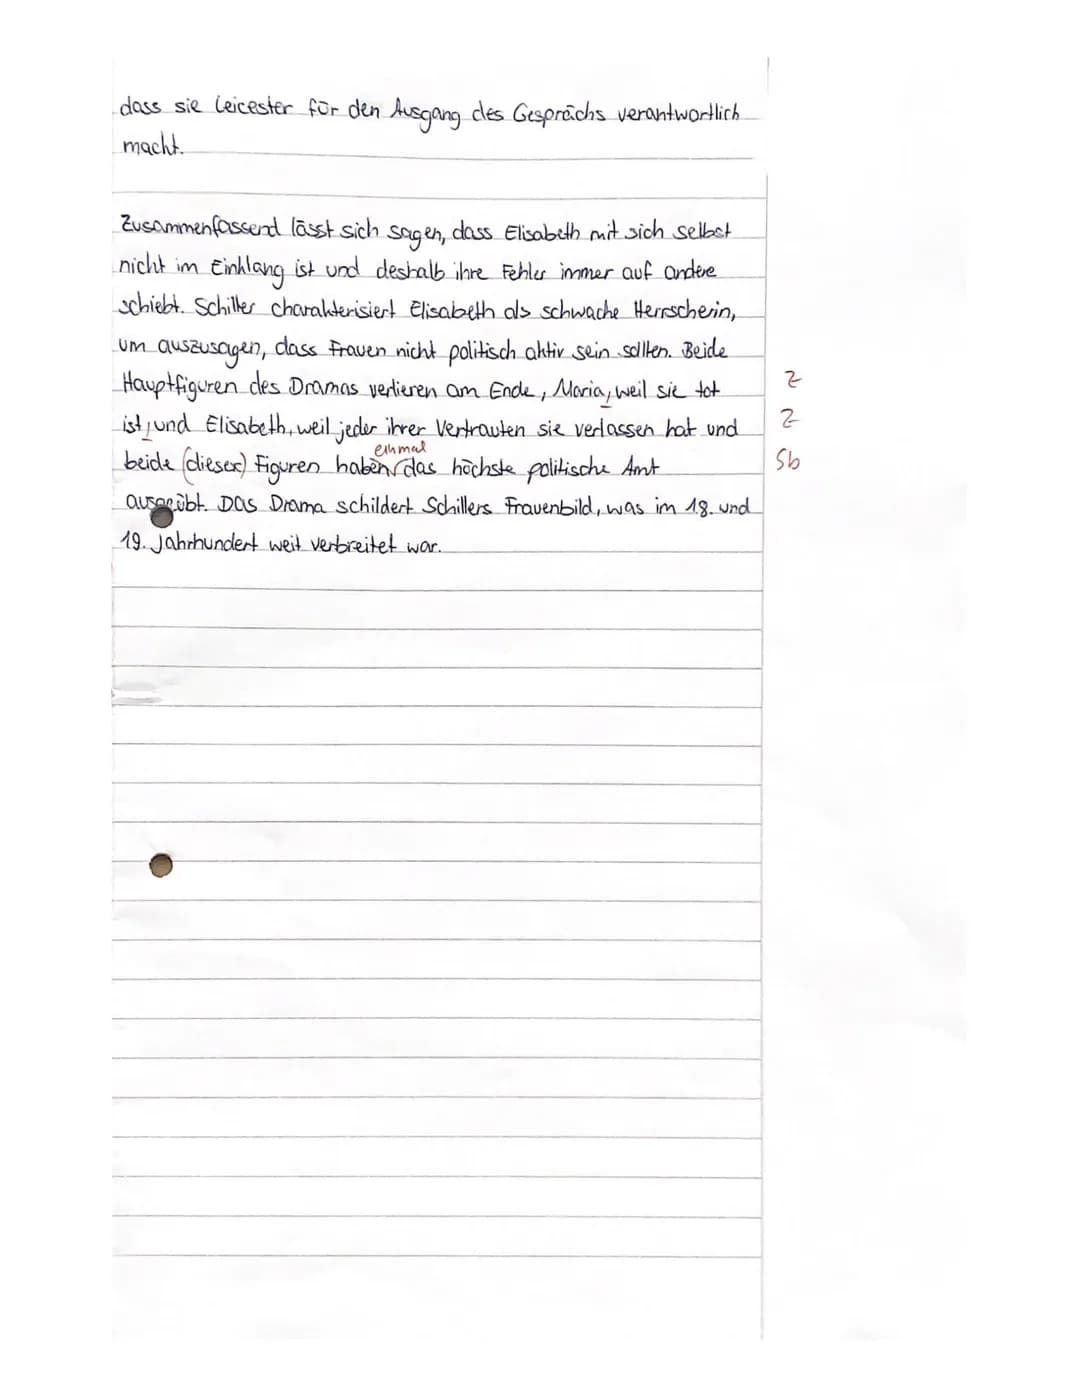 dass sie Leicester für den Ausgang des Gesprächs verantwortlich
macht.
Zusammenfassend lässt sich sagen, dass Elisabeth mit sich selbst
nicht im Einklang ist und deshalb ihre Fehler immer auf andere
schiebt. Schiller charakterisiert Elisabeth als schwache Herrscherin,
um auszusagen, dass Frauen nicht politisch aktiv sein sollten. Beide
Hauptfiguren des Dramas verlieren am Ende, Maria, weil sie tot
Z
ist, und Elisabeth, weil jeder ihrer Vertrauten sie verlassen hat und
Z
einmal
beide (dieser) Figuren haben das höchste politische Amt
Sb
ausgeübt. Das Drama schildert Schillers Frauenbild, was im 18. und
19. Jahrhundert weit verbreitet war.